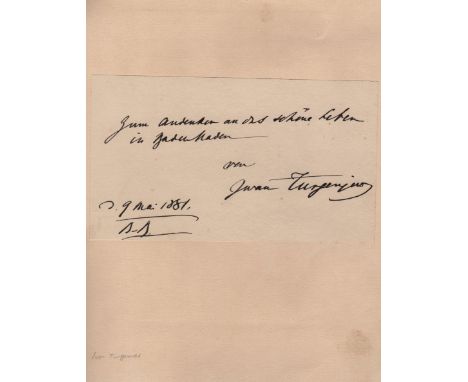 Zum Andenken an das schöne Leben
in Baden Baden
von
Iwan Turgenjew
d. 9 Mai 1881.
B-B
Iwan Turgenjew